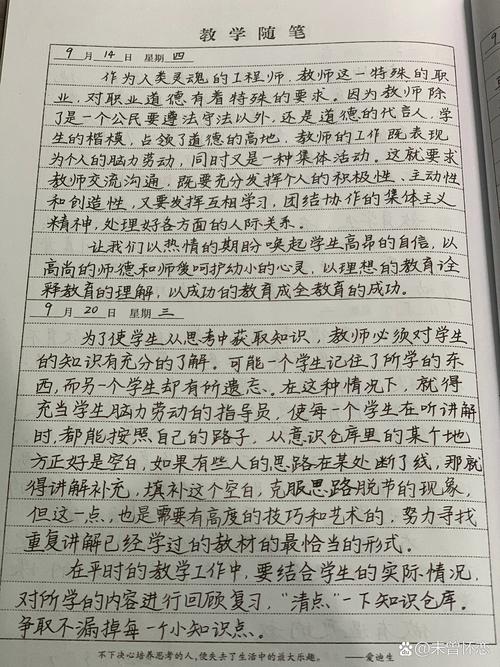 教学随笔
9月14日 星期四
作为人类灵魂的工程师，教师这一特殊的职
业，对职业道德有着特殊的要求。因为教师除
了是一个公民要遵守守法以外，还是道德的代言人，学
生的楷模，占领了道德的高地，教师的工作既表现
为个人的脑力劳动，同时又是一种集体活动。这就要求
教师交流沟通，既要充分发挥个人的积极性、主动性
和创造性，又要发挥互相学习，团结协作的集体主义
精神，处理好各方面的人际关系。
让我们以热情的期盼唤起学生高昂的自信，以
高尚的师德和师爱呵护幼小的心灵，以理想的教育诠
释教育的理解，以成功的教育成全教育的成功。
9月20日 星期三
为了使学生从思考中获取知识，教师必须对学生
的知识有充分的了解。可能一个学生记住了所学的东
西，而另一个学生却有所遗忘。在这种情况下，就得
充当学生脑力劳动的指导员，使每一个学生在听讲解
时，都能按照自己的路子，从意识仓库里的某个地
方正好是空白，如果有些人的思路在某处断了线，那就
得讲解补充，填补这个空白，克服思路脱节的现象，
但这一点，也是需要有高度的技巧和艺术的，努力寻找
重复讲解已经学过的教材的最恰当的形式。
在平时的教学工作中，要结合学生的实际情况，
对所学的内容进行回顾复习，“清点”一下知识仓库。
争取不漏掉每一个小知识点。
不下决心培养思考的人，便失去了生活中的最大乐趣。 ——爱迪生